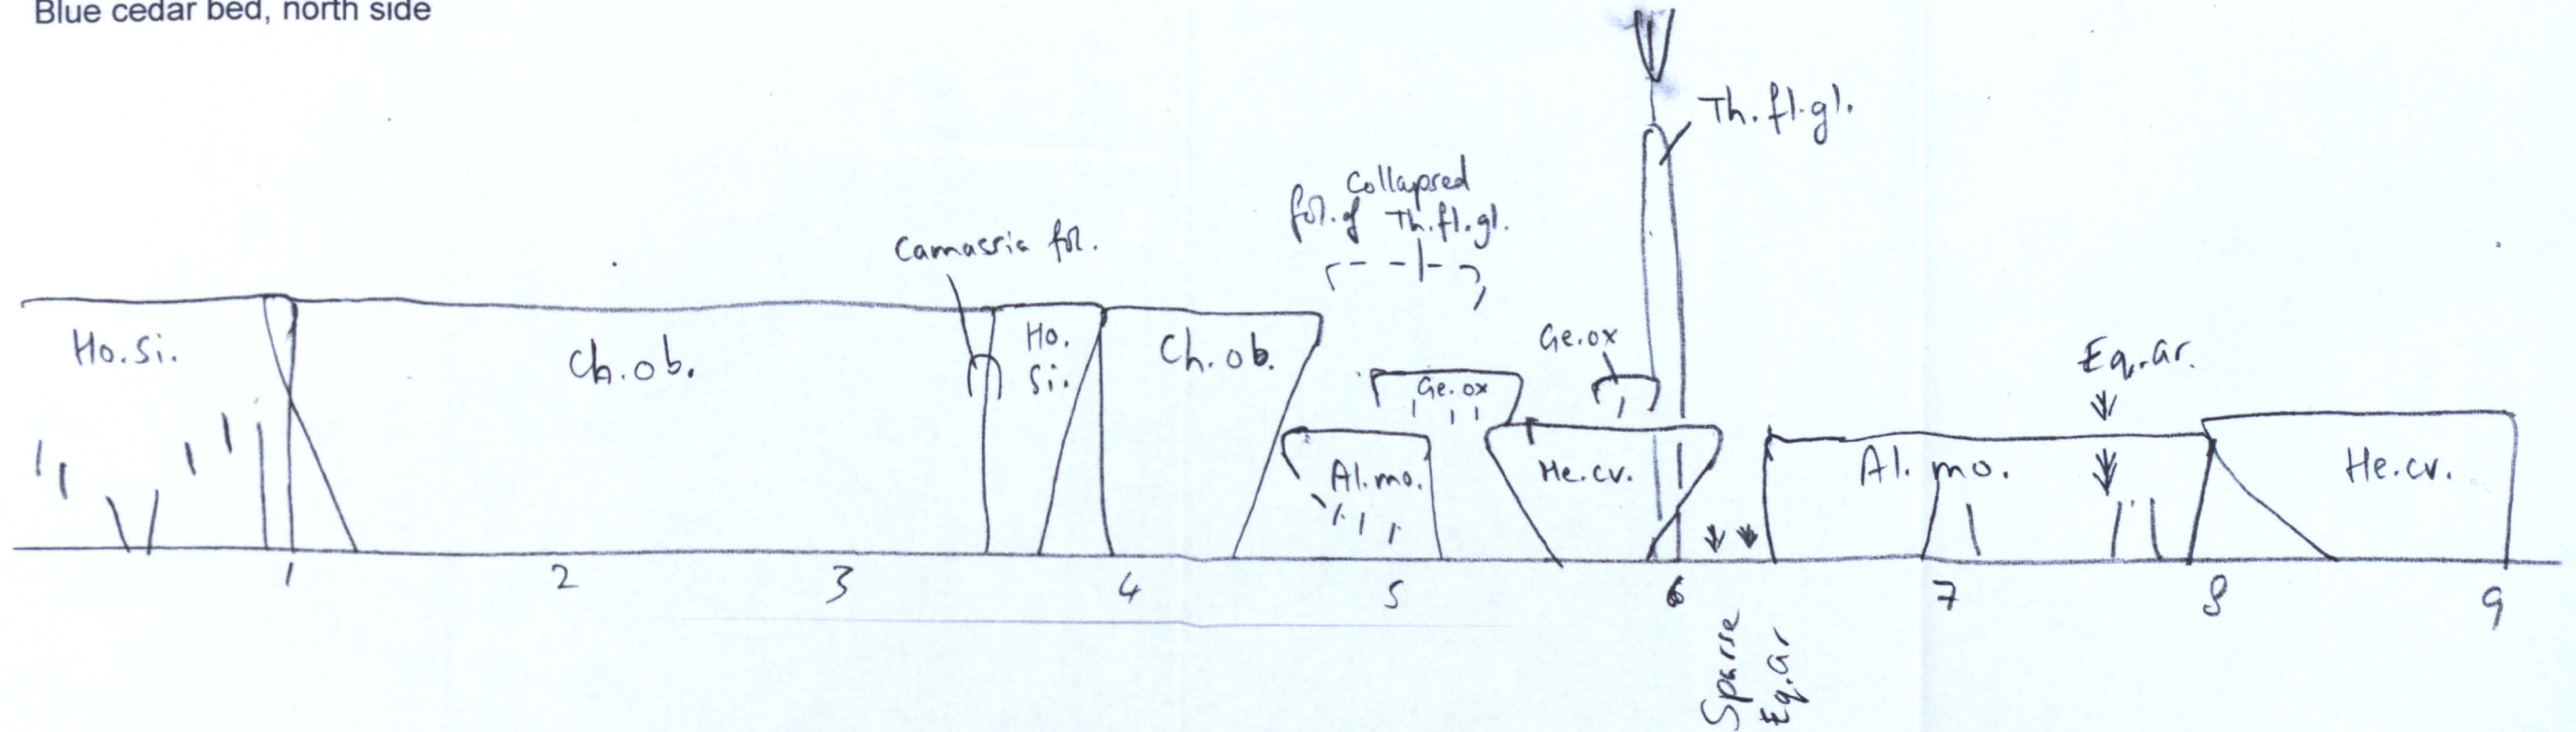 Blue cedar bed, north side
Th.fl.gl.
Collapsed
fol. of Th.fl.gl.
Camassia fol.
Ho.si.
Ch.ob.
Ho.
Si.
Ch.ob.
Ge.ox
Ge.ox
Eq.ar.
Al.mo.
He.cv.
Al.mo.
He.cv.
1 2 3 4 5 6 7 8 9
Sparse
Eq.ar